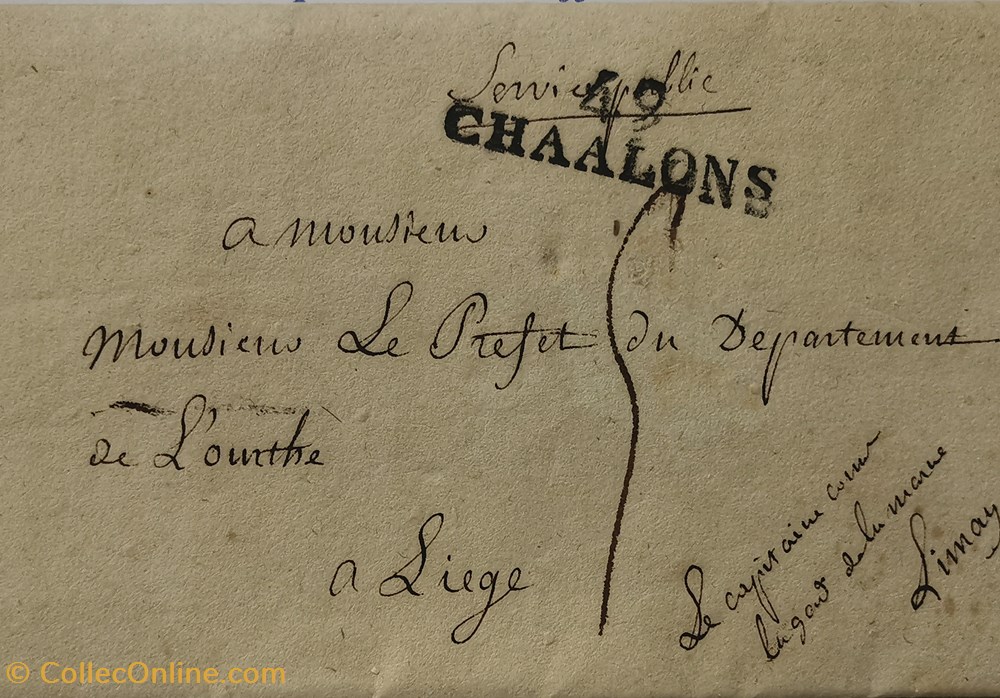 Service public
49
CHAALONS
a monsieur
monsieur Le Prefet du Departement
de L'ourthe
a Liege
Le capitaine comm
la gend de la marne
Limay
© CollecOnline.com